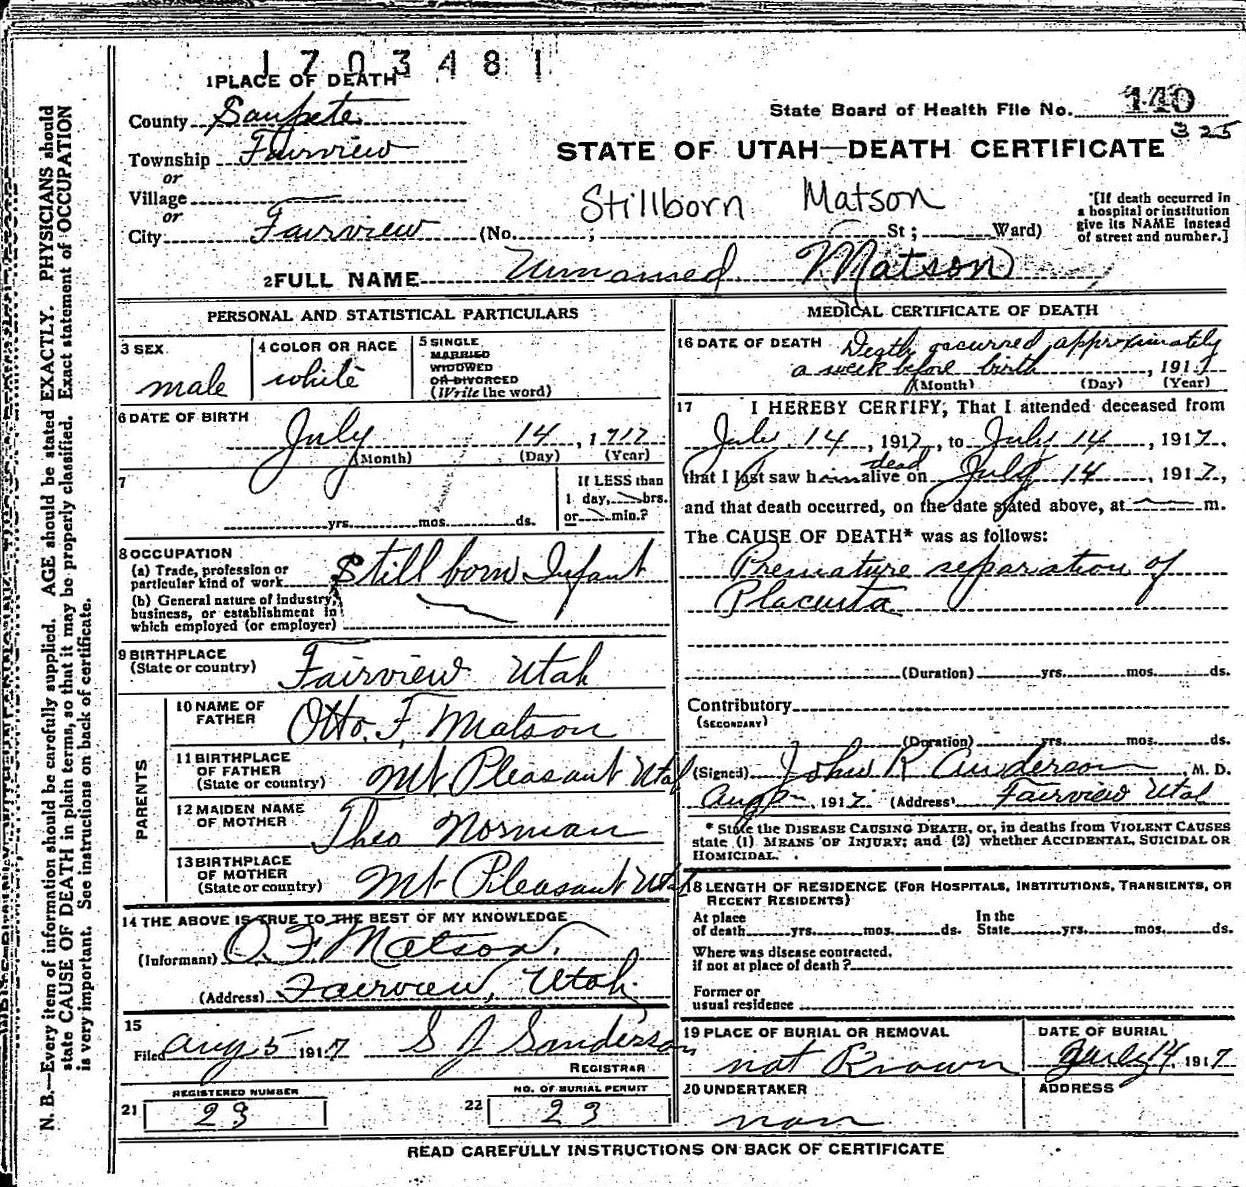 1703481
1 PLACE OF DEATH
County Sanpete
Township Fairview
or
Village
or
City Fairview (No. ; St ; Ward)
State Board of Health File No. 140
325
STATE OF UTAH—DEATH CERTIFICATE
Stillborn Matson
*[If death occurred in
a hospital or institution
give its NAME instead
of street and number.]
2 FULL NAME Unnamed Matson
PERSONAL AND STATISTICAL PARTICULARS
3 SEX
male
4 COLOR OR RACE
white
5 SINGLE
MARRIED
WIDOWED
OR DIVORCED
(Write the word)
6 DATE OF BIRTH
July 14, 1917
(Month) (Day) (Year)
7
yrs. mos. ds.
If LESS than
1 day, hrs.
or min.?
8 OCCUPATION
(a) Trade, profession or
particular kind of work Still born Infant
(b) General nature of industry,
business, or establishment in
which employed (or employer)
9 BIRTHPLACE
(State or country) Fairview Utah
PARENTS
10 NAME OF
FATHER Otto. F. Matson
11 BIRTHPLACE
OF FATHER
(State or country) Mt Pleasant Utah
12 MAIDEN NAME
OF MOTHER Theo Norman
13 BIRTHPLACE
OF MOTHER
(State or country) Mt Pleasant Utah
14 THE ABOVE IS TRUE TO THE BEST OF MY KNOWLEDGE
(Informant) O. F. Matson.
(Address) Fairview, Utah.
15
Filed Aug 5 1917 S J Sanderson
REGISTRAR
REGISTERED NUMBER
21 23
NO. OF BURIAL PERMIT
22 23
MEDICAL CERTIFICATE OF DEATH
16 DATE OF DEATH Death occurred approximately
a week before birth, 1917
(Month) (Day) (Year)
17 I HEREBY CERTIFY, That I attended deceased from
July 14, 1917, to July 14, 1917,
that I last saw him alive on dead July 14, 1917,
and that death occurred, on the date stated above, at m.
The CAUSE OF DEATH* was as follows:
Premature separation of
Placenta
(Duration) yrs. mos. ds.
Contributory
(SECONDARY)
(Duration) yrs. mos. ds.
(Signed) John R Anderson M. D.
Aug 1917 (Address) Fairview Utah
* State the DISEASE CAUSING DEATH, or, in deaths from VIOLENT CAUSES
state (1) MEANS OF INJURY; and (2) whether ACCIDENTAL, SUICIDAL OR
HOMICIDAL.
18 LENGTH OF RESIDENCE (FOR HOSPITALS, INSTITUTIONS, TRANSIENTS, OR
RECENT RESIDENTS)
At place
of death yrs. mos. ds.
In the
State yrs. mos. ds.
Where was disease contracted,
if not at place of death?
Former or
usual residence
19 PLACE OF BURIAL OR REMOVAL
not Known
DATE OF BURIAL
July 14, 1917
20 UNDERTAKER
non
ADDRESS
READ CAREFULLY INSTRUCTIONS ON BACK OF CERTIFICATE
N. B.—Every item of information should be carefully supplied. AGE should be stated EXACTLY. PHYSICIANS should
state CAUSE OF DEATH in plain terms, so that it may be properly classified. Exact statement of OCCUPATION
is very important. See instructions on back of certificate.